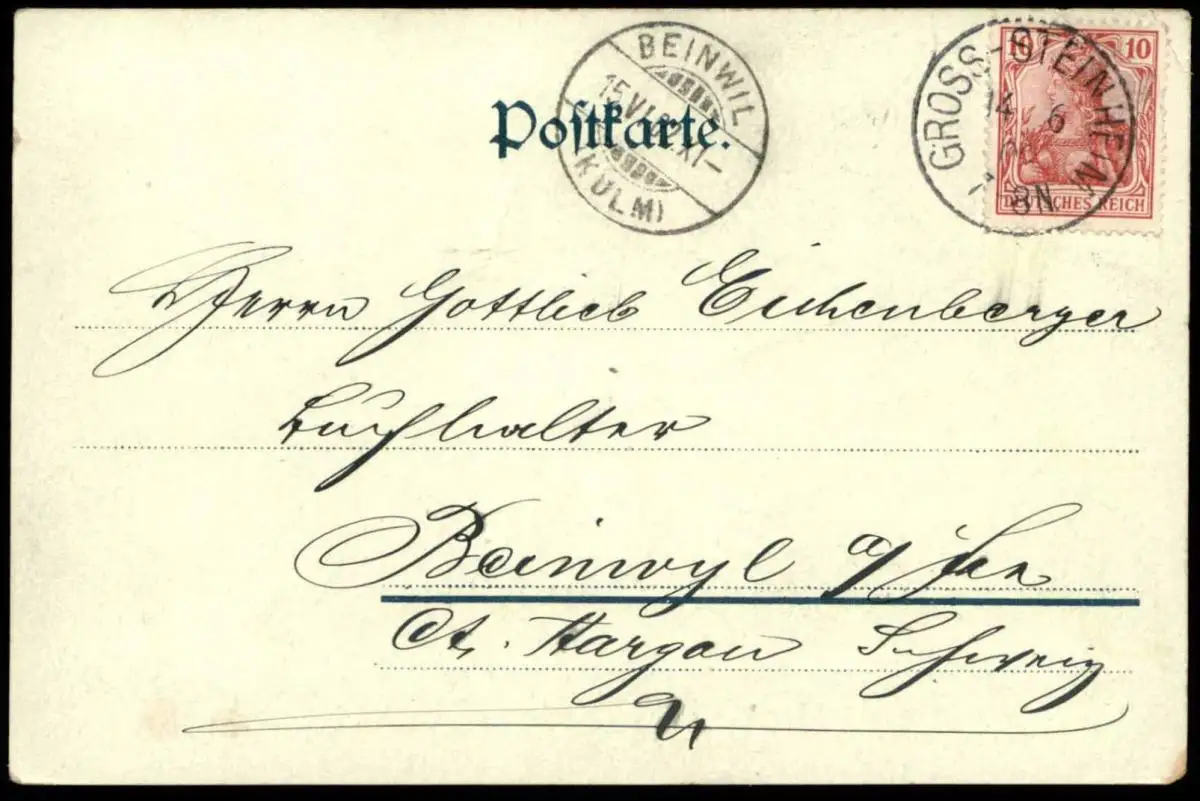 BEINWIL
15.VI.
XI–
(KULM)
Postkarte.
GROSS-STEINHEIM
14 6
7-8N
10 10
DEUTSCHES REICH
Herrn Gottlieb Eichenberger
Buchhalter
Beinwyl a/See
Ct. Aargau Schweiz